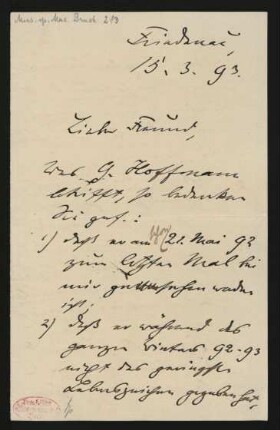 Mus. ep. Max Bruch 213
Friedenau,
15. 3. 93.
Lieber Freund,
Was G. Hoffmann
betrifft, so bedenken
Sie gef.:
1) daß er am 21. Mai 92
zum letzten Mal bei
mir gesehen worden
ist;
2) daß er während des
ganzen Winters 92-93
nicht das geringste
Lebenszeichen gegeben hat,